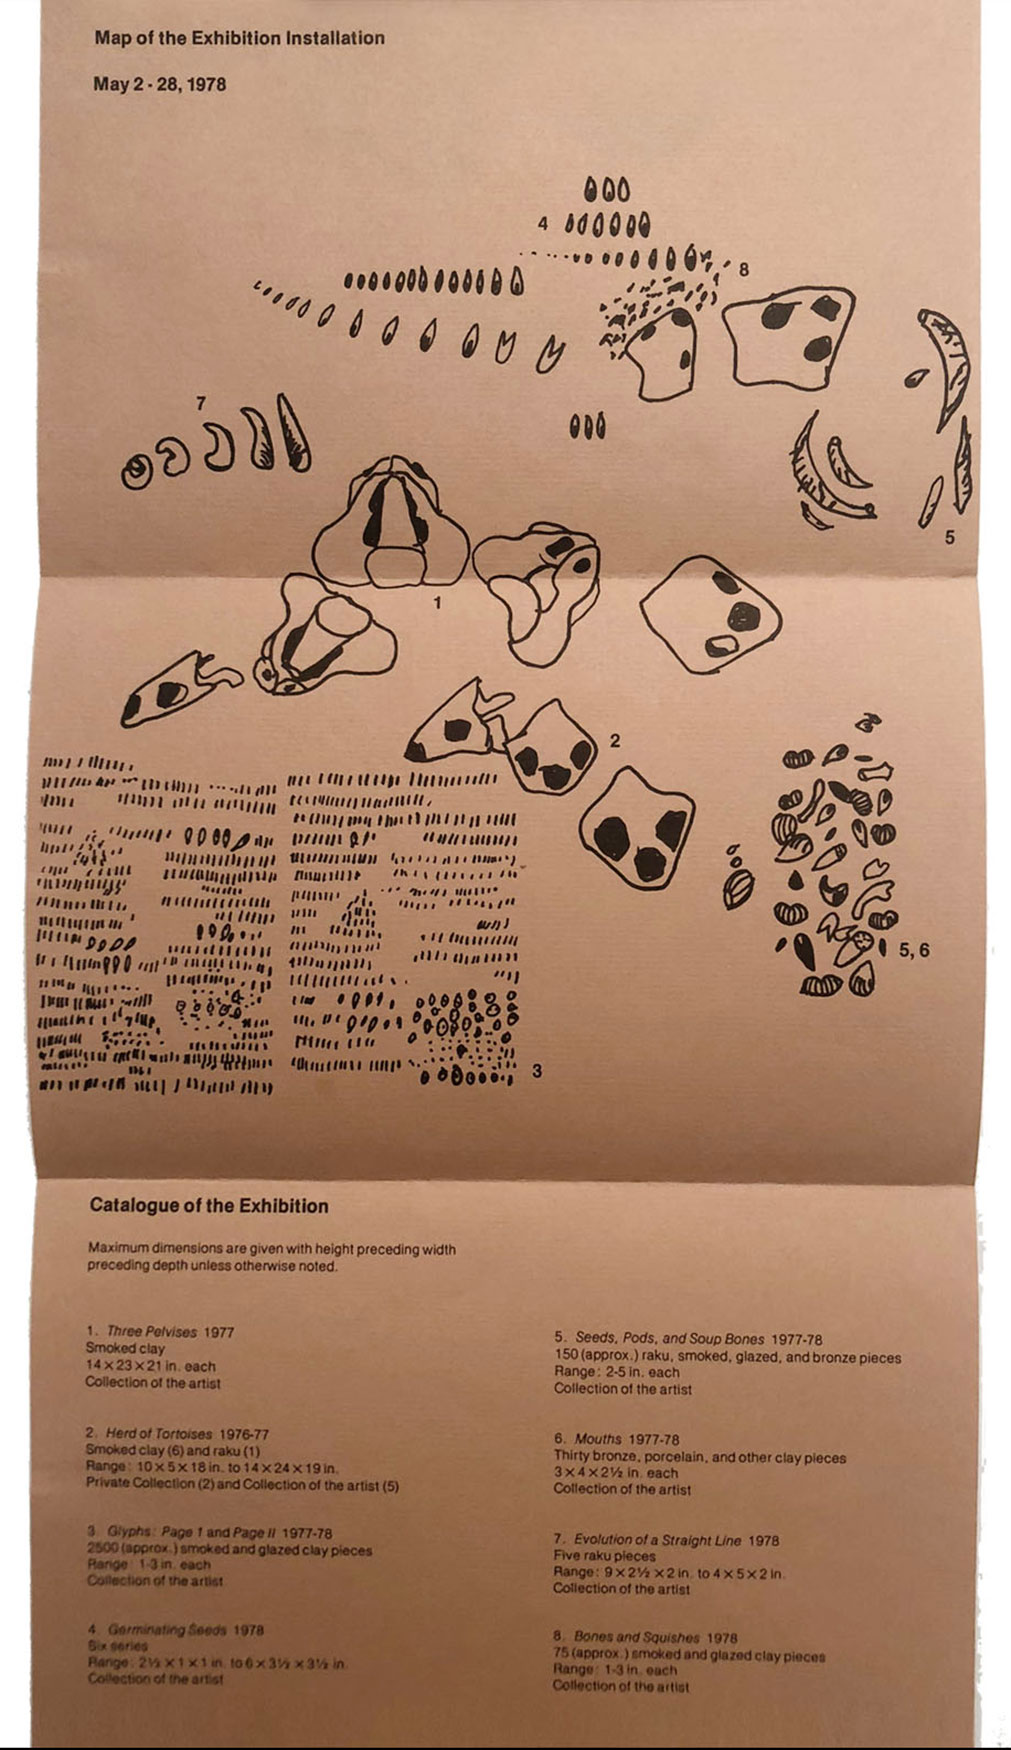 Map of the Exhibition Installation
May 2 - 28, 1978
4
8
7
5
1
2
5, 6
3
Catalogue of the Exhibition
Maximum dimensions are given with height preceding width
preceding depth unless otherwise noted.
1. Three Pelvises 1977
Smoked clay
14 × 23 × 21 in. each
Collection of the artist
2. Herd of Tortoises 1976-77
Smoked clay (6) and raku (1)
Range: 10 × 5 × 18 in. to 14 × 24 × 19 in.
Private Collection (2) and Collection of the artist (5)
3. Glyphs: Page 1 and Page II 1977-78
2500 (approx.) smoked and glazed clay pieces
Range: 1-3 in. each
Collection of the artist
4. Germinating Seeds 1978
Six series
Range: 2½ × 1 × 1 in. to 6 × 3½ × 3½ in.
Collection of the artist
5. Seeds, Pods, and Soup Bones 1977-78
150 (approx.) raku, smoked, glazed, and bronze pieces
Range: 2-5 in. each
Collection of the artist
6. Mouths 1977-78
Thirty bronze, porcelain, and other clay pieces
3 × 4 × 2½ in. each
Collection of the artist
7. Evolution of a Straight Line 1978
Five raku pieces
Range: 9 × 2½ × 2 in. to 4 × 5 × 2 in.
Collection of the artist
8. Bones and Squishes 1978
75 (approx.) smoked and glazed clay pieces
Range: 1-3 in. each
Collection of the artist